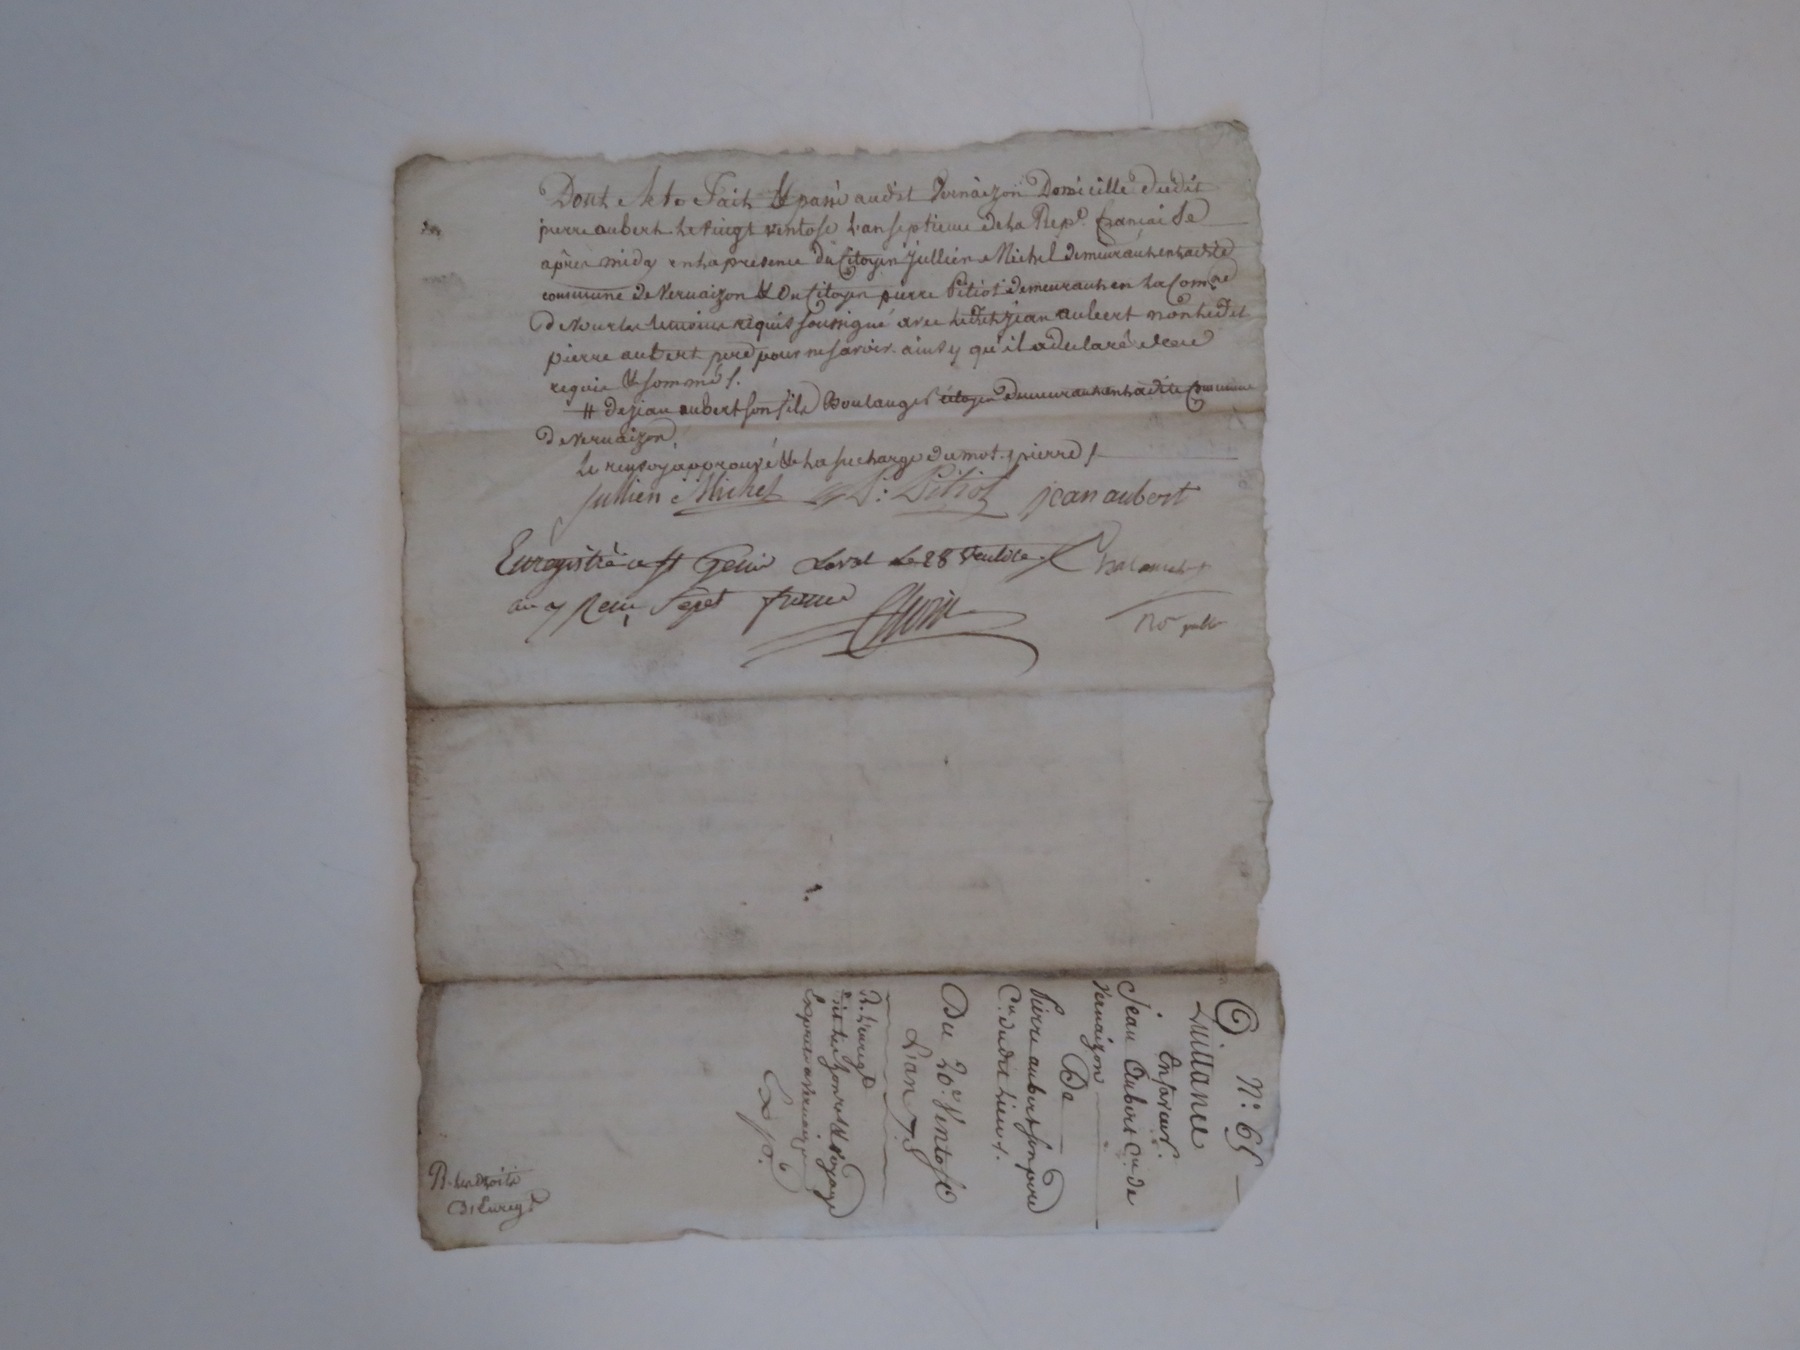 Dont Acte Fait & passé audit Vernaizon Domicille dudit
pierre aubert le vingt ventose l'an septieme de la Rep.e francaise
après midy en la presence du Citoyen jullien Michel demeurant en ladite
commune de Vernaizon & du Citoyen pierre Pitiot demeurant en la Com.ne
de temoins requis soussigné avec ledit jean aubert non ledit
pierre aubert pere pour ne savoir ainsy qu'il a declaré
requis & sommés.
# de jean aubert son fils Boulanger citoyen demeurant en ladite Commune
de Vernaizon.
le renvoy approuvé & la surcharge du mot pierre
jullien Michel P: Pitiot jean aubert
Enregistré a St Genis Laval le 28 Ventose
an 7 Reçu franc
No: 65
Quittance
En faveur
Jean Aubert C.en de
Vernaizon
De
Pierre aubert son pere
C.en dudit Lieu
Du 20e Ventose
L'an 7e
R. l'enregt
& voyage
Exprès a Vernaizon
R. les droits
D'Enregt